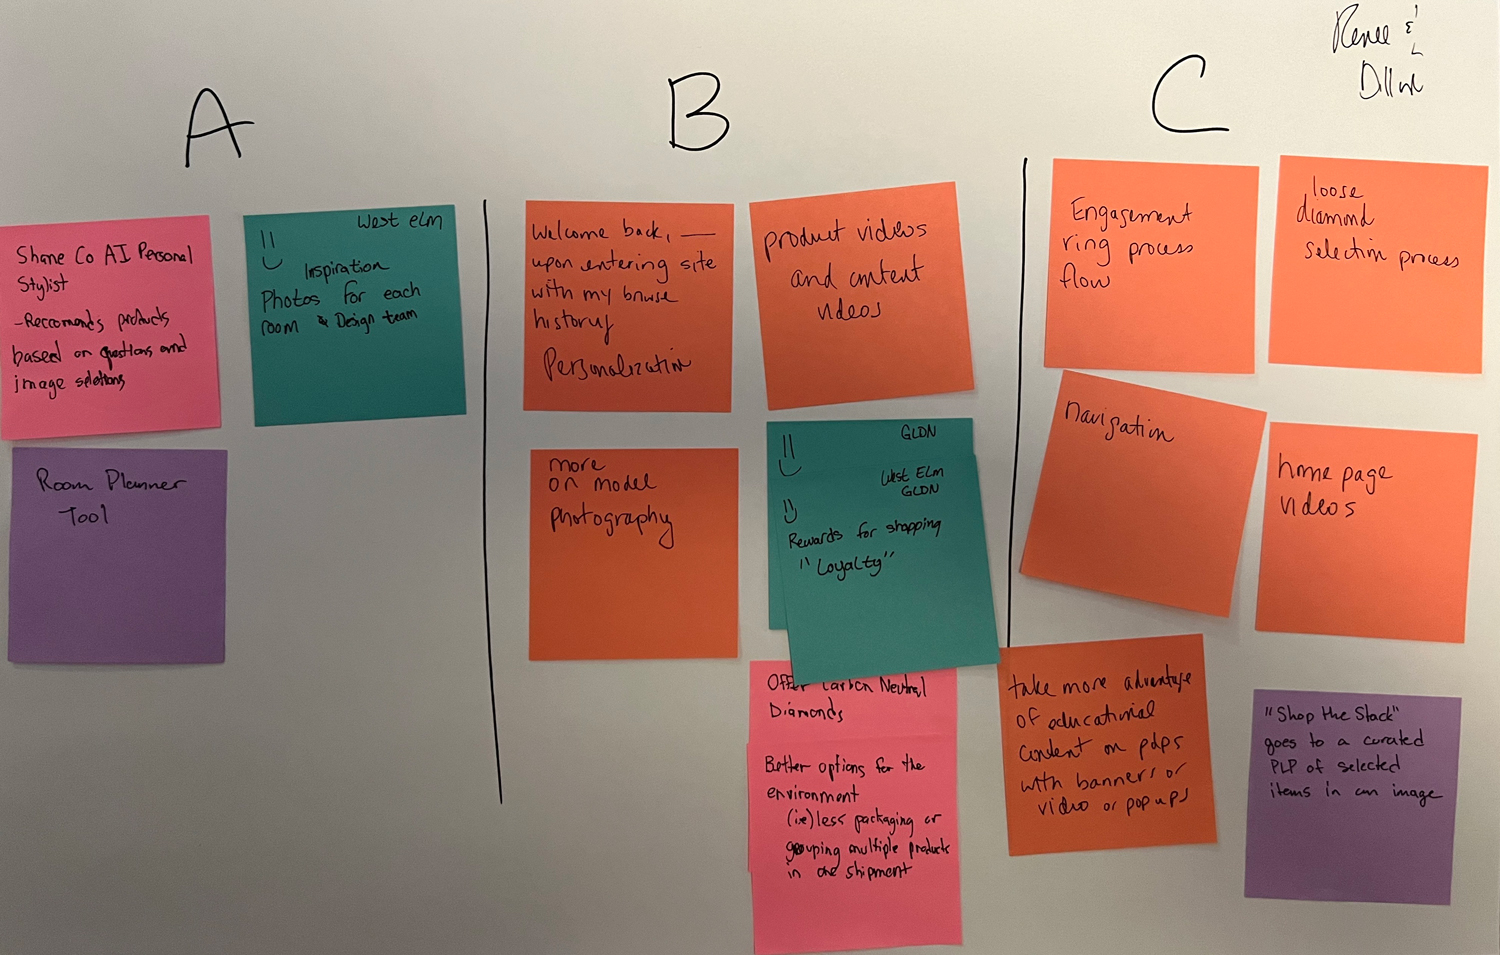 Renee &
Dillon
A
B
C
Shane Co AI Personal
Stylist
-Reccomends products
based on questions and
image seletions
West elm
Inspiration
Photos for each
room & Design team
Room Planner
Tool
Welcome back, —
upon entering site
with my browse
history
Personalization
product videos
and content
videos
more
on model
photography
GLDN
West Elm
GLDN
Rewards for shopping
"Loyalty"
Offer Carbon Neutral
Diamonds
Better options for the
environment
(ie) less packaging or
grouping multiple products
in one shipment
Engagement
ring process
flow
loose
diamond
selection process
navigation
home page
videos
take more advantage
of educational
content on pdps
with banners or
video or pop ups
"Shop the Stack"
goes to a curated
PLP of selected
items in an image